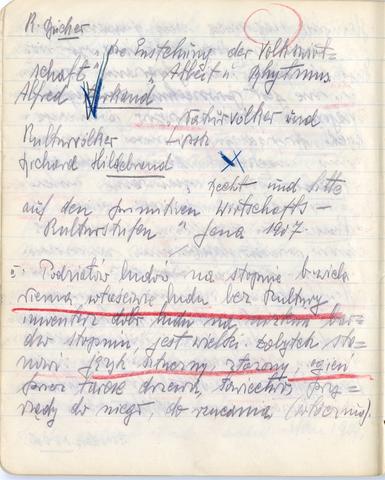 K. Bücher
"Die Enstehung der Volkswirt=
schaft" " Arbeit u. Rhytmus
Alfred Vierkand
Naturvölker und
Kulturvölker Lipsk
Richard Hildebrand
" Recht und Sitte
auf den primitiven Wirtschafts-
Kulturstufen " Jena 1907.
Podział ludów na stopnie
właściwie ludu bez kultury
inwentarz dóbr ludu na niskim bar=
dzo stopniu, jest wielki. Dobytek sta=
nowi: język sztuczny złożony, ogień
przez tarcie drzewa, towiectwo przy=
rządy do niego, do rzucania (włócznia).